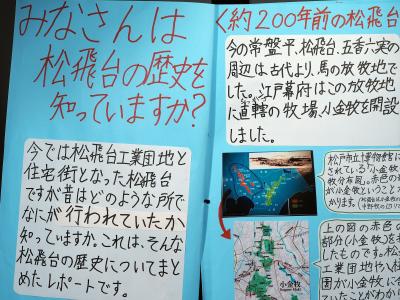 みなさんは
松飛台の歴史を
知っていますか?
今では松飛台工業団地と
住宅街となった松飛台
ですが昔はどのような所で
なにが行われていたか
知っていますか。これは、そんな
松飛台の歴史についてまと
めたレポートです。
〈約200年前の松飛台
今の常盤平、松飛台、五香六実の
周辺は古代より、馬の放牧地で
でした。江戸幕府はこの放牧地
に直轄の牧場、小金牧を開設
しました。
松戸市立博物館に
されている「小金牧
牧分布図」。赤色の
が小金牧ということ
かります。
小金牧
上の図の赤色の
部分(小金牧)を
したものです。松
工業団地や八柱
園が小金牧に
ていたことがわか